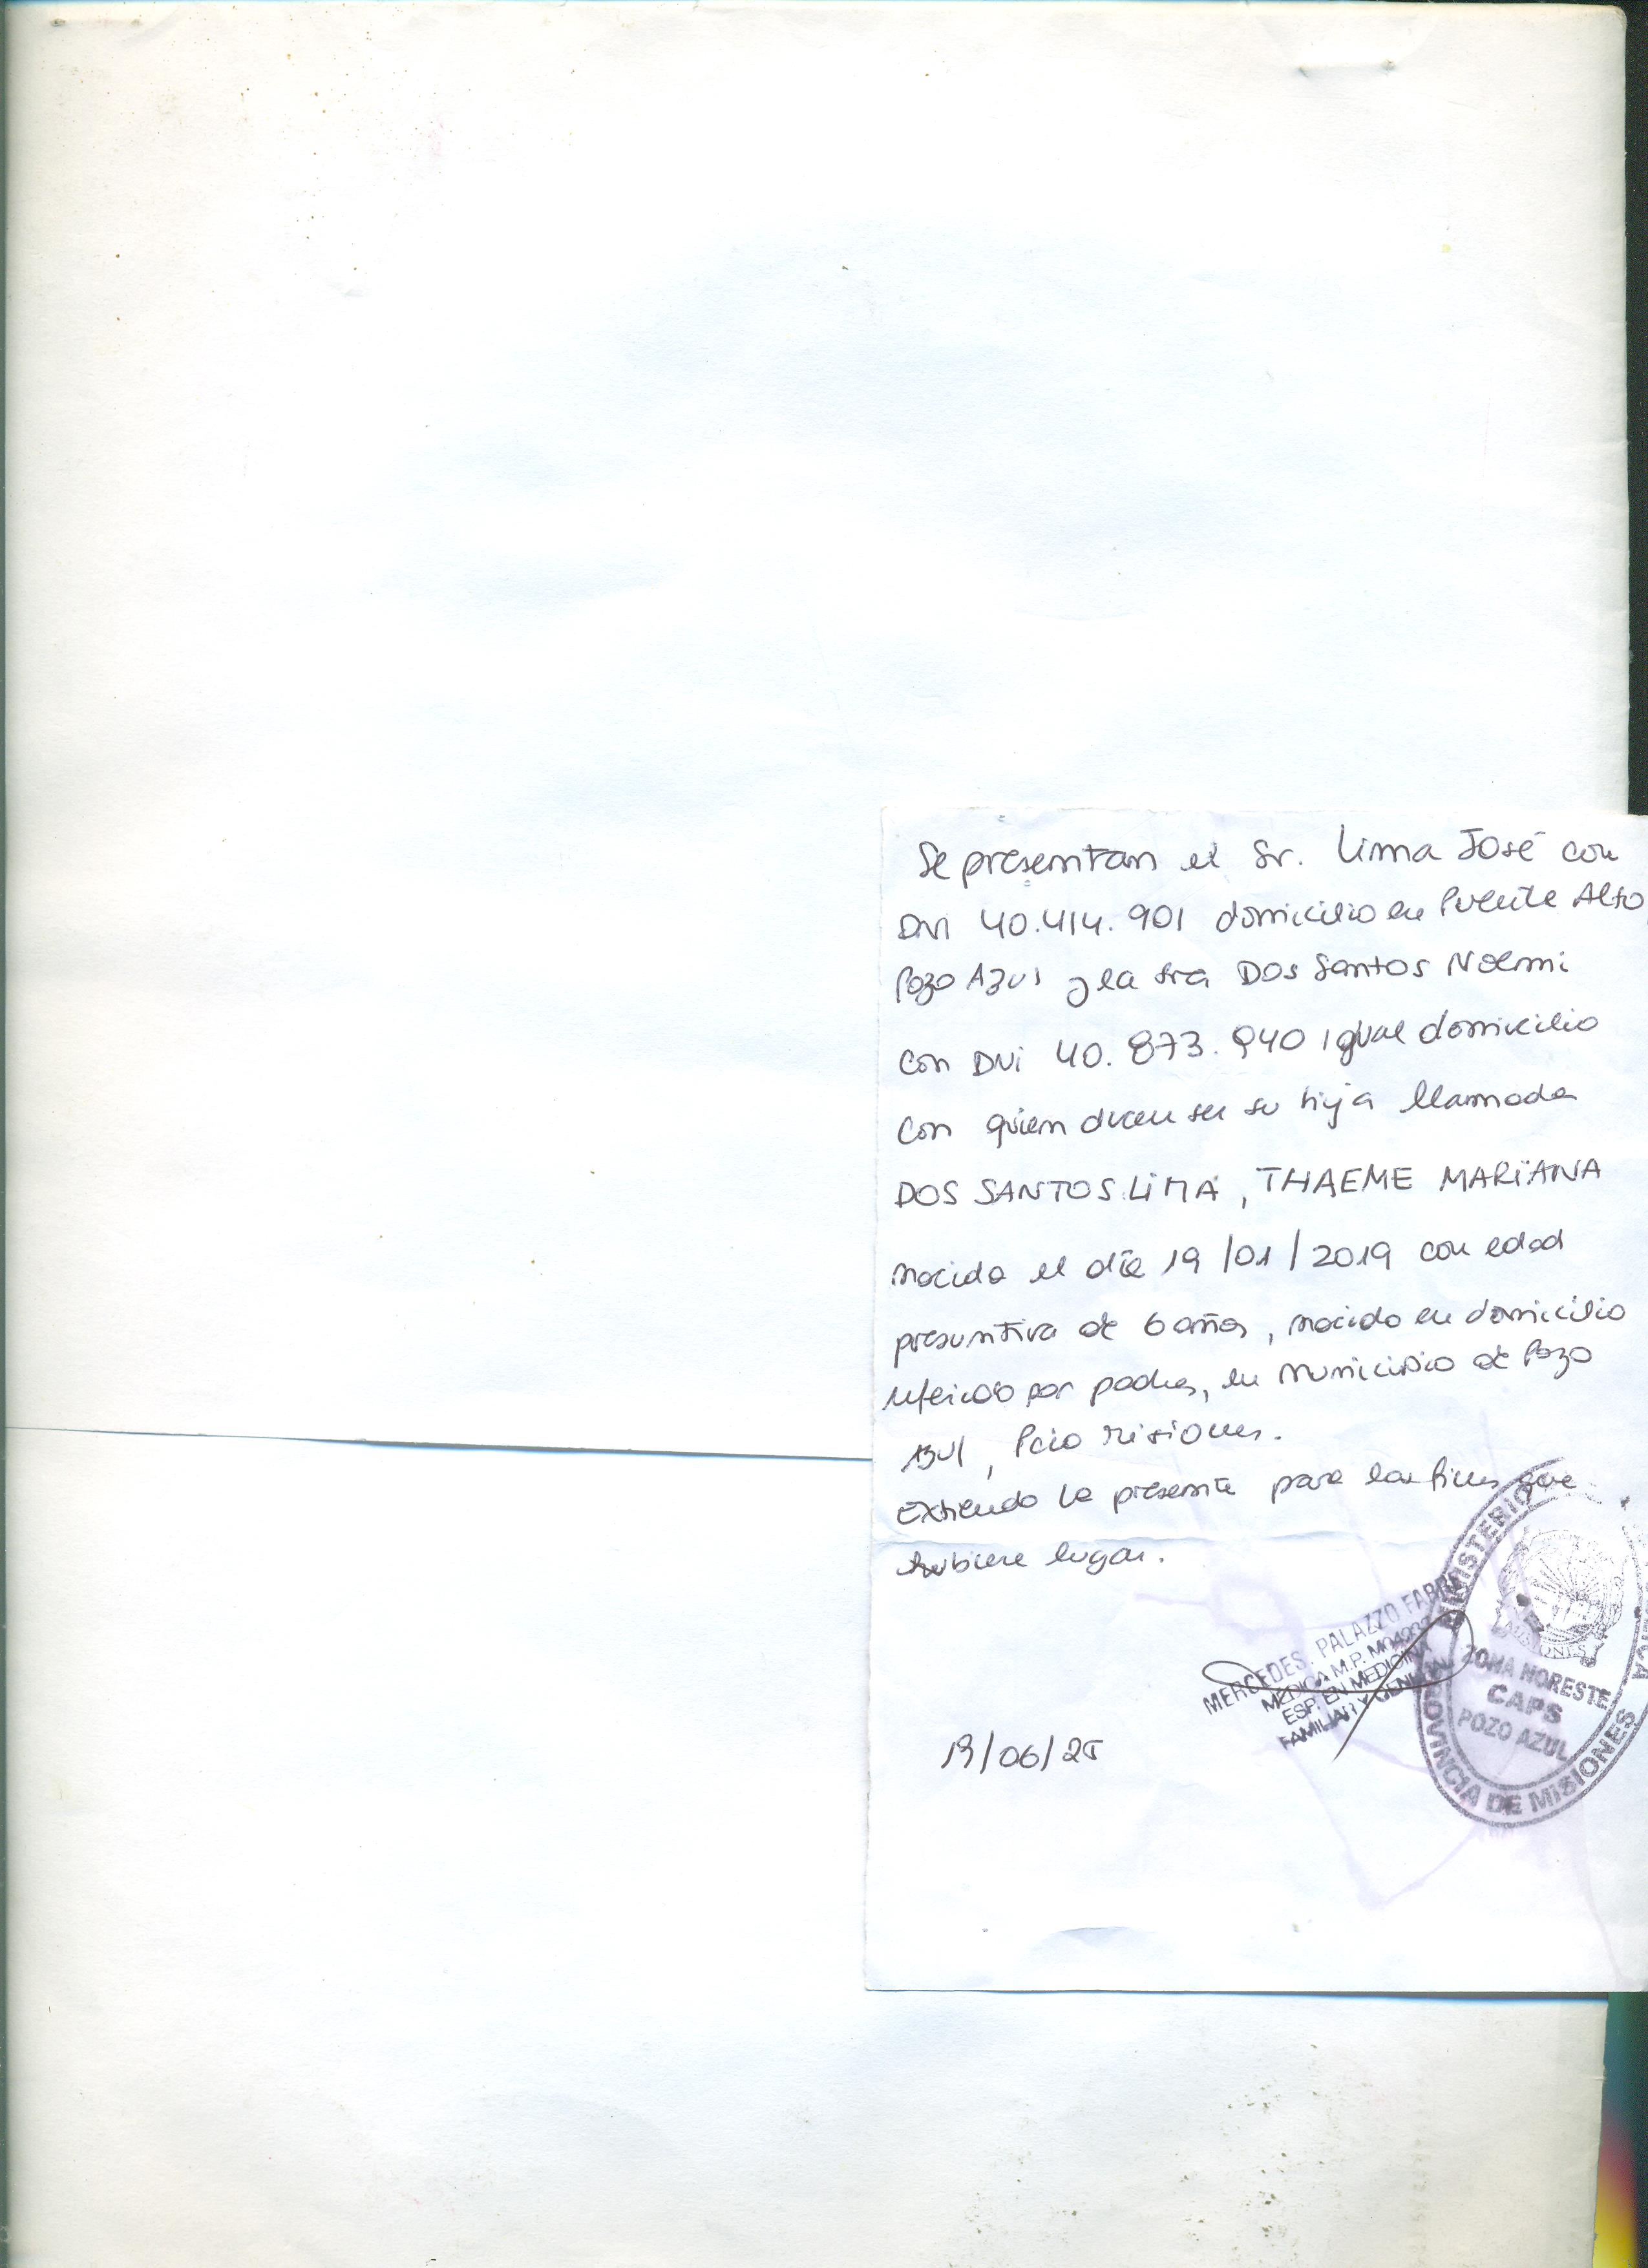 Se presentan el Sr. Lima José con
DNI 40.414.901 domicilio en Puente Alto,
Pozo Azul y la sra Dos Santos Noemi
con DNI 40.873.940 igual domicilio
con quien dicen ser su hija llamada
DOS SANTOS LIMA, THAEME MARIANA
nacida el día 19/01/2019 con edad
presuntiva de 6 años, nacido en domicilio
referido por padres, en municipio de Pozo
Azul, Pcia Misiones.
Extiendo la presente para los fines que
hubiere lugar.
MERCEDES. PALAZZO
MÉDICA M.P.
ESP. EN MEDICINA
FAMILIAR Y
MINISTERIO
MISIONES
ZONA NORESTE
CAPS
POZO AZUL
PROVINCIA DE MISIONES
19/06/25